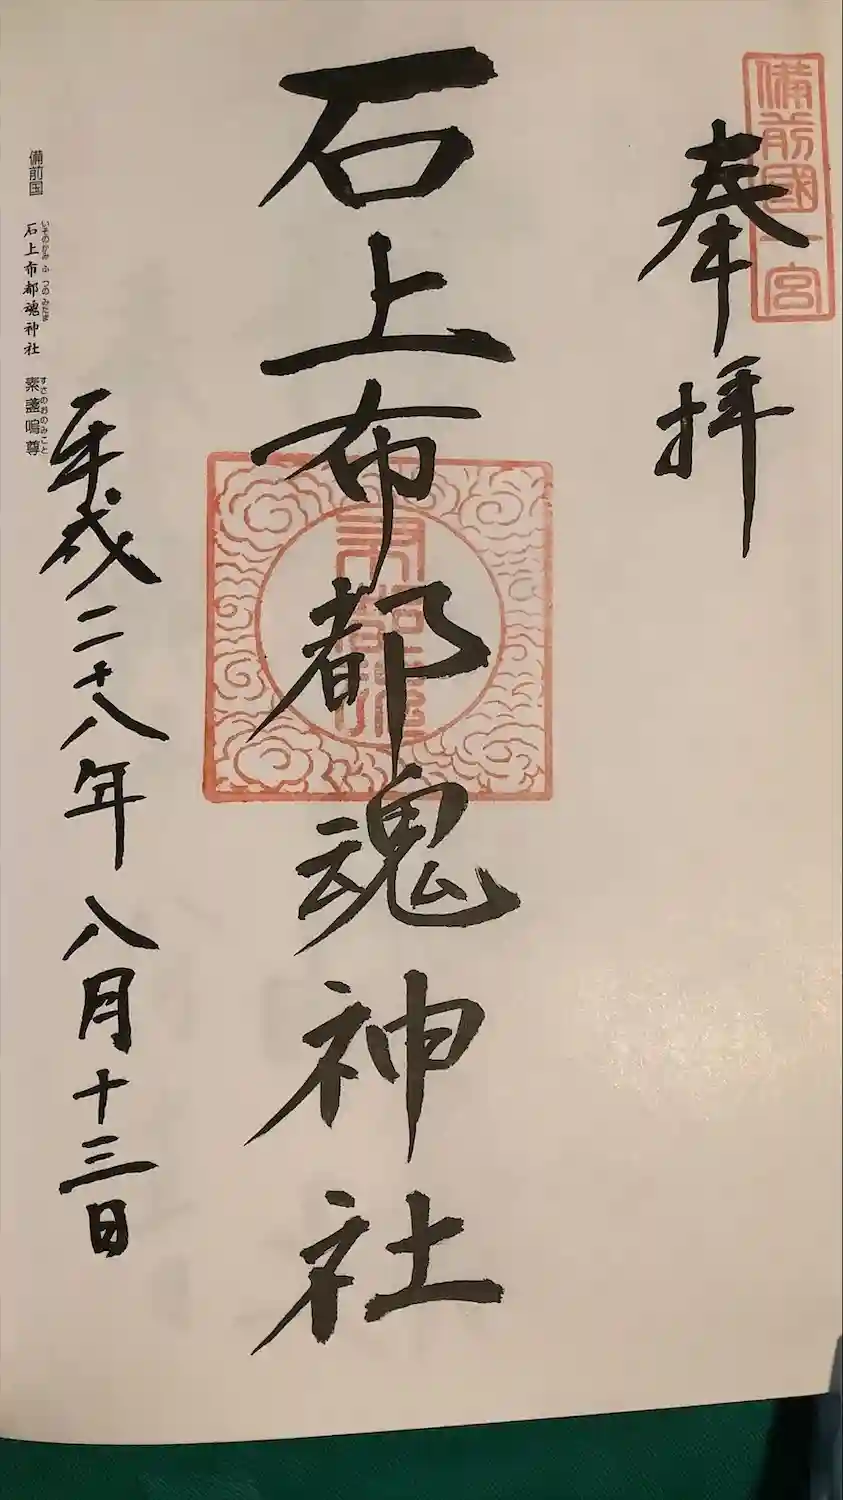 備前國一宮
奉拝
石上布都魂神社
布都魂
平成二十八年八月十三日
いそのかみ ふ つのみたま すさのおのみこと
備前国 石上布都魂神社 素盞嗚尊